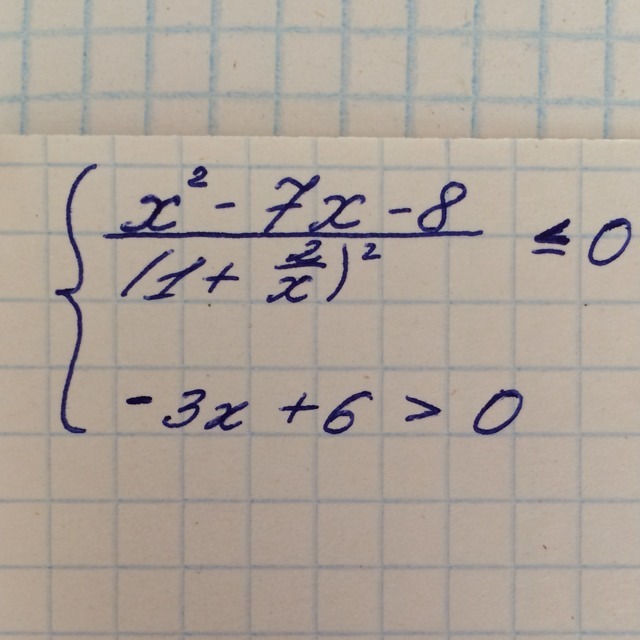 x² - 7x - 8
(1 + 2/x)²
≤ 0
-3x + 6 > 0